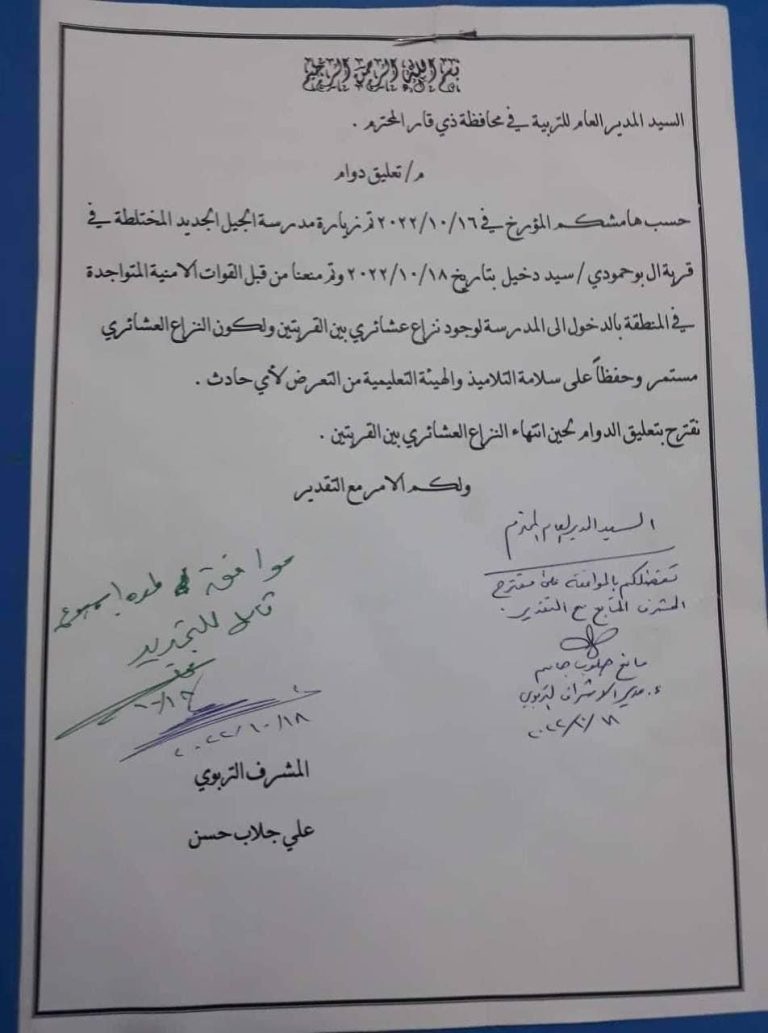 بسم الله الرحمن الرحيم
السيد المدير العام للتربية في محافظة ذي قار المحترم .
م/ تعليق دوام
حسب هامشكم المؤرخ في ٢٠٢٢/١٠/١٦ تم زيارة مدرسة الجيل الجديد المختلطة في
قرية ال بوحمودي / سيد دخيل بتاريخ ٢٠٢٢/١٠/١٨ وتم منعنا من قبل القوات الامنية المتواجدة
في المنطقة بالدخول الى المدرسة لوجود نزاع عشائري بين القريتين ولكون النزاع العشائري
مستمر وحفظاً على سلامة التلاميذ والهيئة التعليمية من التعرض لأي حادث .
نقترح بتعليق الدوام لحين انتهاء النزاع العشائري بين القريتين .
ولكم الامر مع التقدير
السيد المدير العام المحترم
تفضلكم بالموافقة على مقترح
المشرف المتابع مع التقدير .
جاسم
م. مدير الاشراف التربوي
٢٠٢٢/١٠/١٨
موافق لمدة اسبوع
قابل للتجديد
١٠/١٨
٢٠٢٢/١٠/١٨
المشرف التربوي
علي جلاب حسن